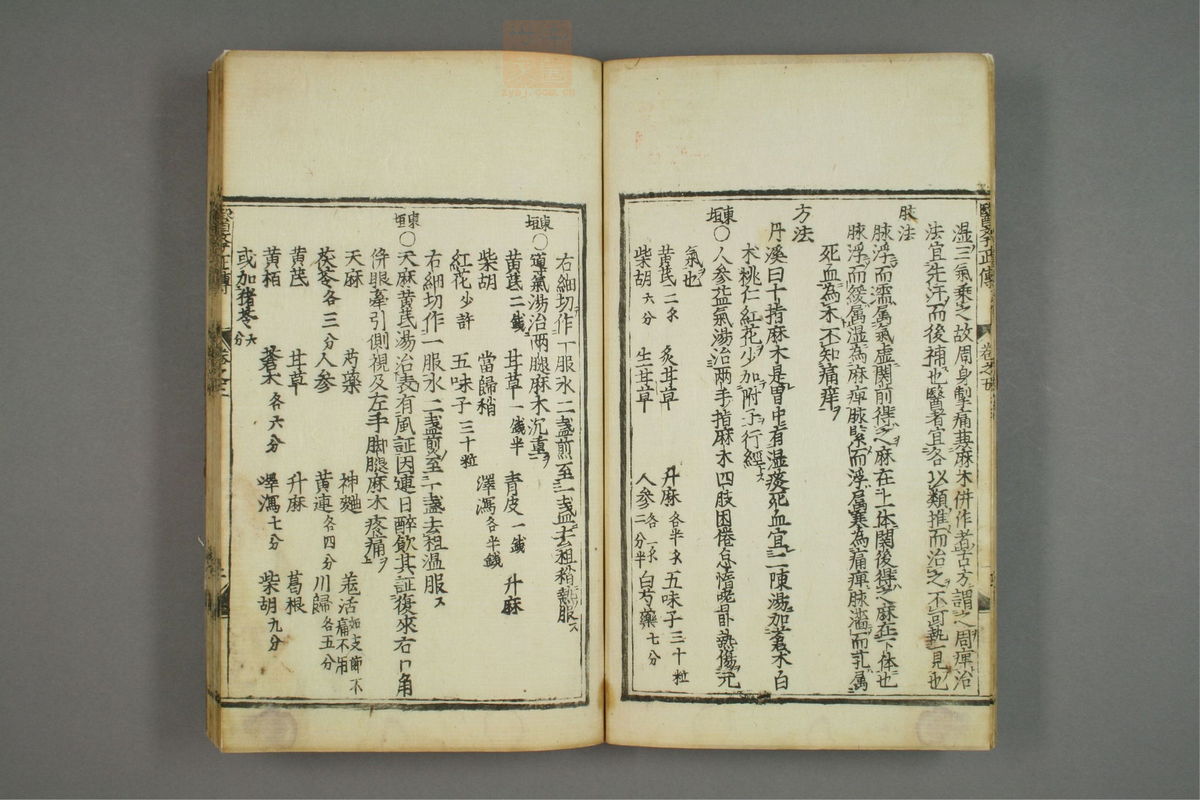 湿三氣乗之故周身掣痛兼麻木併作者古方謂之周痺治
法宜先汗而後補也醫者宜各以類推而治之不可執一見也
脉法
脉浮而濡属氣虚関前得之麻在上体関後得之麻在下体也
脉浮而緩属湿為麻痺脉緊而浮属寒為痛痺脉濇而芤属
死血為木不知痛痒
方法
丹溪曰十指麻木是胃中有湿痰死血宜二陳湯加蒼木白
木桃仁紅花少加附子行經
東垣〇人参益氣湯治兩手指麻木四肢困倦怠惰嗜卧熱傷元
氣也
黄芪二戔 炙甘草 升麻各半戔 五味子三十粒
柴胡六分 生甘草 人参各一戔二分半 白芍藥七分
右細切作一服水二盞煎至一盞去柤稍熱服
東垣〇導氣湯治兩腿麻木沉重
黄芪二錢 甘草一錢半 青皮一錢 升麻
柴胡 當歸稍 澤瀉各半錢
紅花少許 五味子三十粒
右細切作一服水二盞煎至一盞去柤温服
東垣〇天麻黄芪湯治表有風証因連日醉飲其証復來右口角
併眼牽引側視及左手脚腿麻木疼痛
天麻 芍藥 神麯 羗活如支節不痛不用
茯苓各三分 人参 黄連各四分 川歸各五分
黄芪 甘草 升麻 葛根
黄栢 蒼木各六分 澤瀉七分 柴胡九分
或加猪苓六分
醫學正傳
卷之五